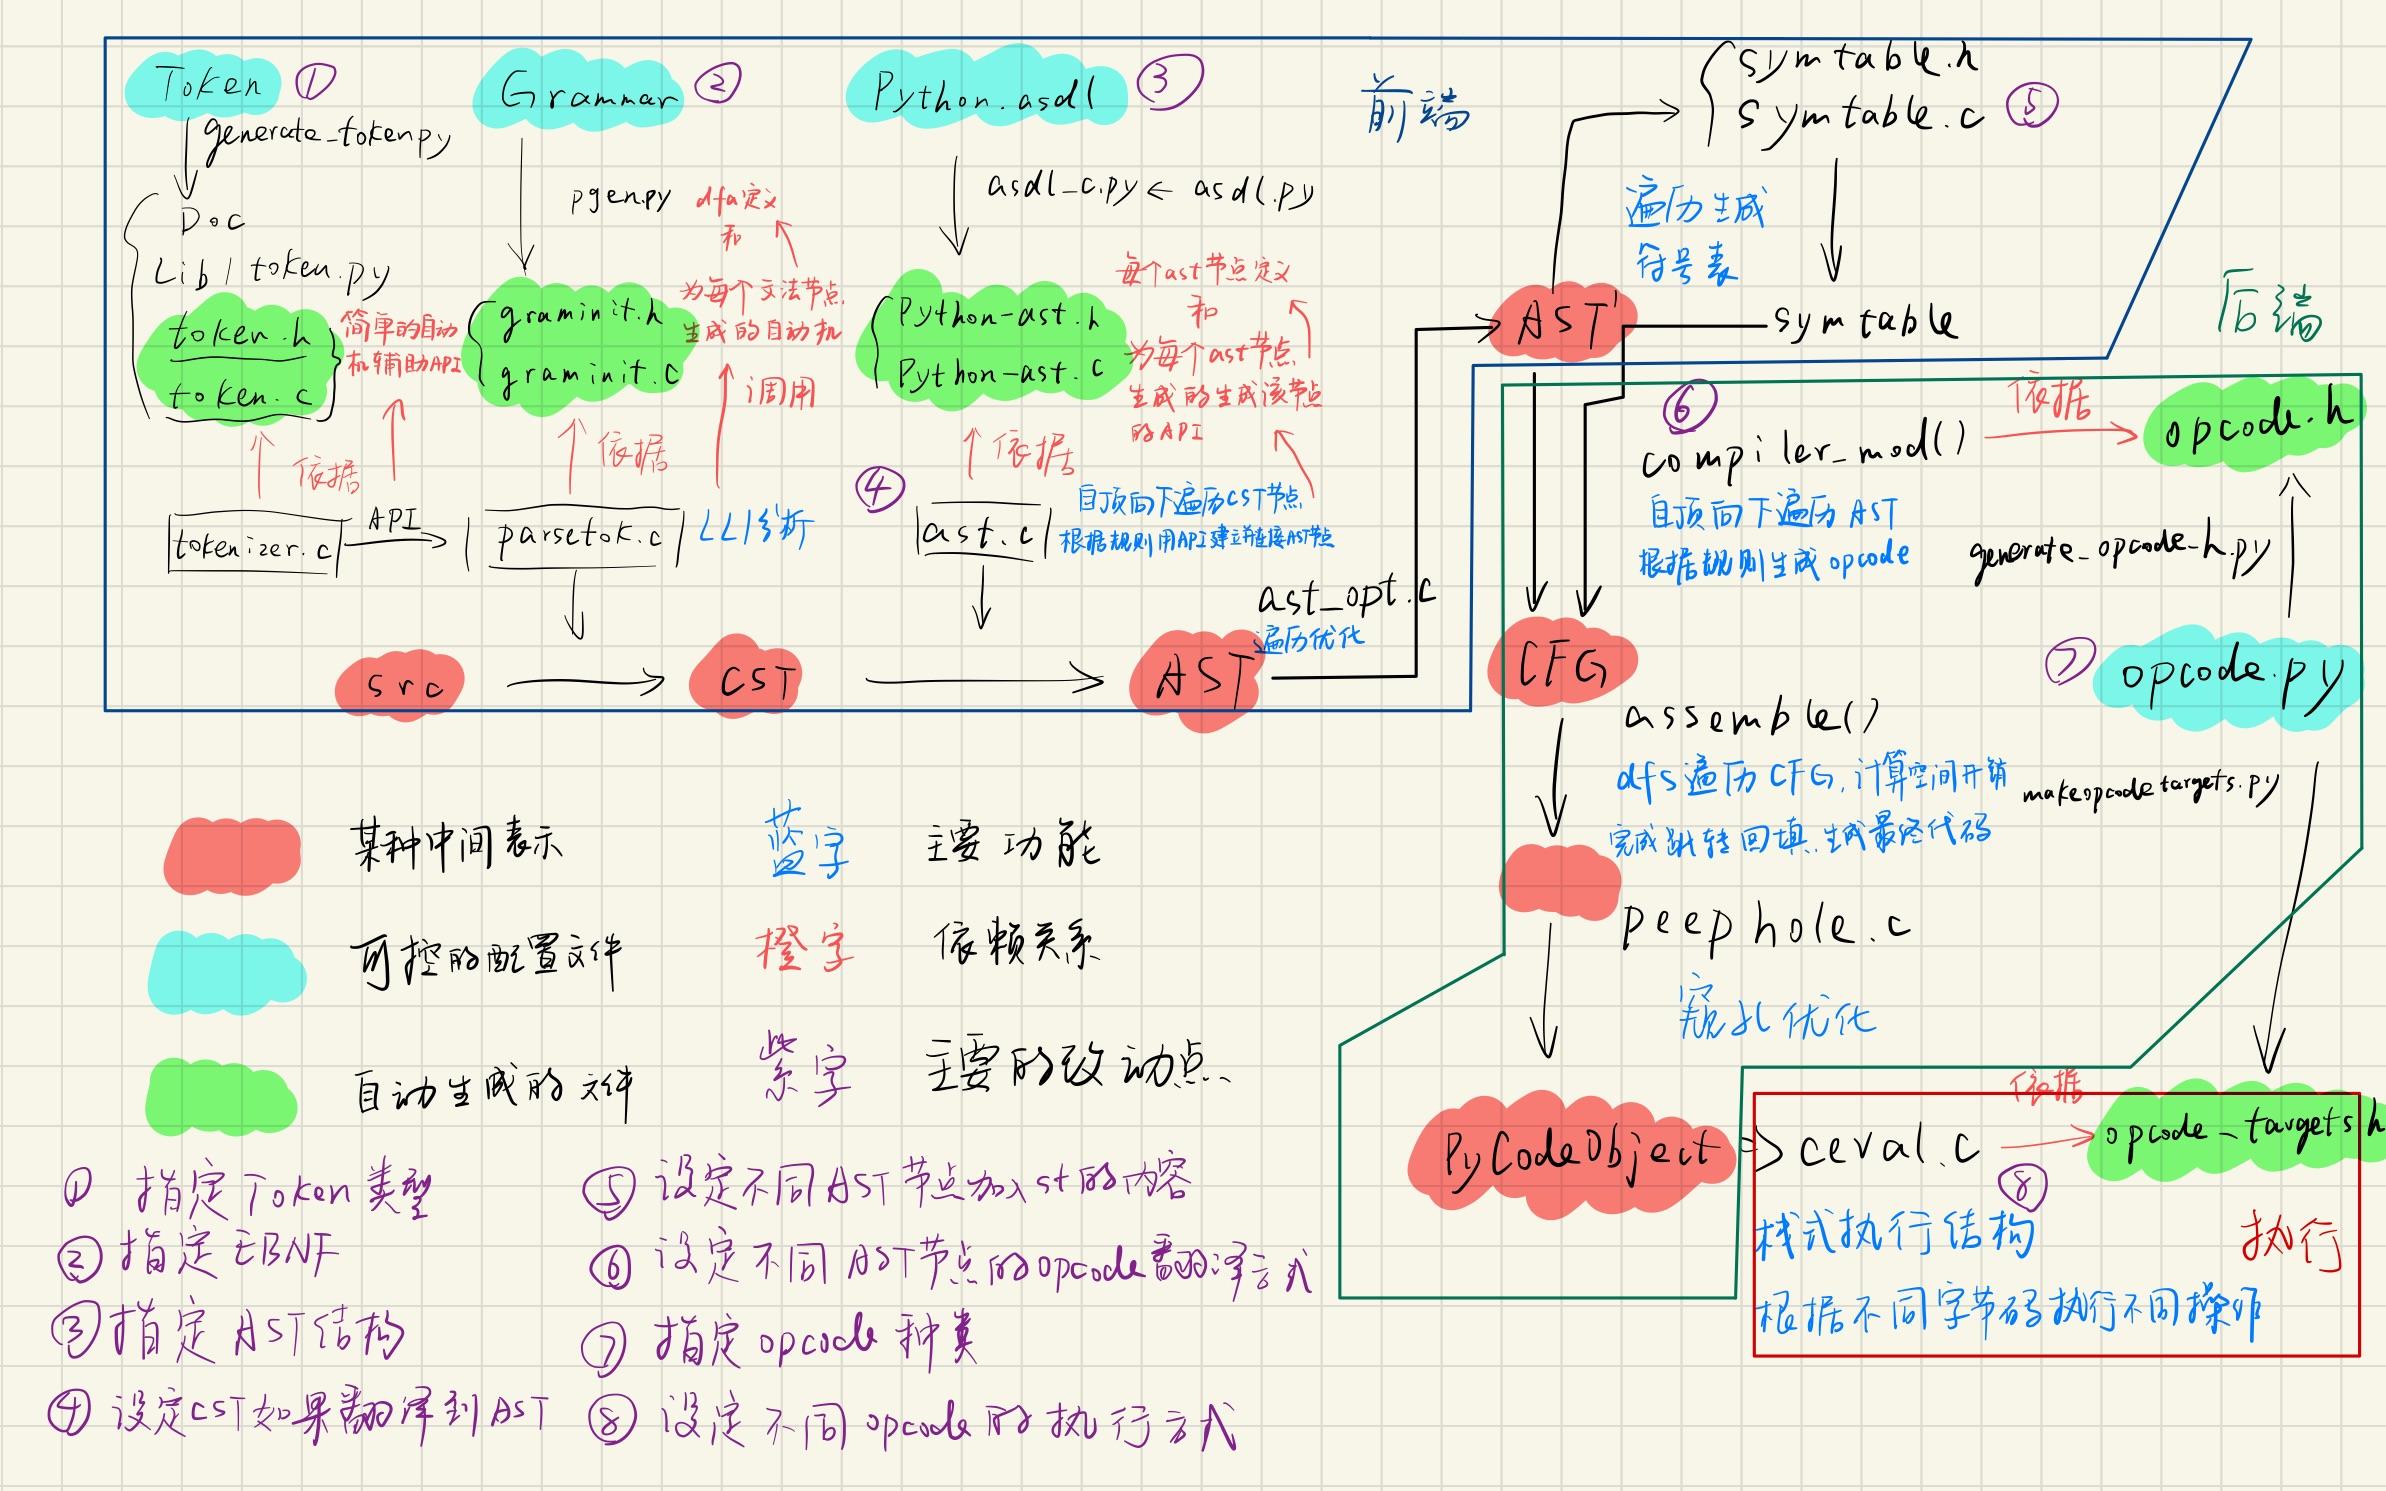 Token ①
generate_token.py
Doc
Lib / token.py
token.h
token.c
简单的自动
机辅助API
依据
tokenizer.c
API
Grammar ②
pgen.py
dfa定义
和
为每个文法节点
生成的自动机
graminit.h
graminit.c
调用
依据
parsetok.c
LL1分析
Python.asdl ③
asdl_c.py ← asdl.py
每个ast节点定义
和
为每个ast节点
生成的生成该节点
的API
Python-ast.h
Python-ast.c
依据
④
ast.c
自顶向下遍历CST节点
根据规则用API建立并链接AST节点
src
CST
AST
ast_opt.c
遍历优化
前端
symtable.h
symtable.c ⑤
遍历生成
符号表
AST'
symtable
后端
⑥
compiler_mod()
依据
opcode.h
自顶向下遍历AST
根据规则生成opcode
generate_opcode_h.py
CFG
⑦
opcode.py
assemble()
dfs遍历CFG,计算空间开销
完成跳转回填,生成最终代码
makeopcodetargets.py
peephole.c
窥孔优化
PyCodeObject
ceval.c
依据
opcode_targets.h
⑧
栈式执行结构
执行
根据不同字节码执行不同操作
某种中间表示
蓝字 主要功能
可控的配置文件
橙字 依赖关系
自动生成的文件
紫字 主要的改动点
① 指定Token类型
② 指定EBNF
③ 指定AST结构
④ 设定CST如果翻译到AST
⑤ 设定不同AST节点加入st的内容
⑥ 设定不同AST节点的opcode翻译方式
⑦ 指定opcode种类
⑧ 设定不同opcode的执行方式